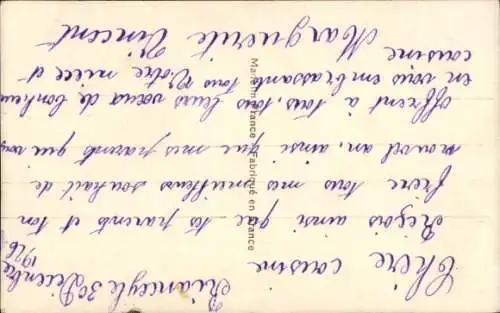 le 30 Décembre
1926
Chère cousine
Reçois ainsi que tes parents et ton
frère tous mes meilleurs souhait de
nouvel an, ainsi que mes parents qui vous
offrent à tous, tous leurs vœux de bonheur
en vous embrassant tous Votre nièce et
cousine
Marguerite Vincent
Made in France - Fabriqué en France